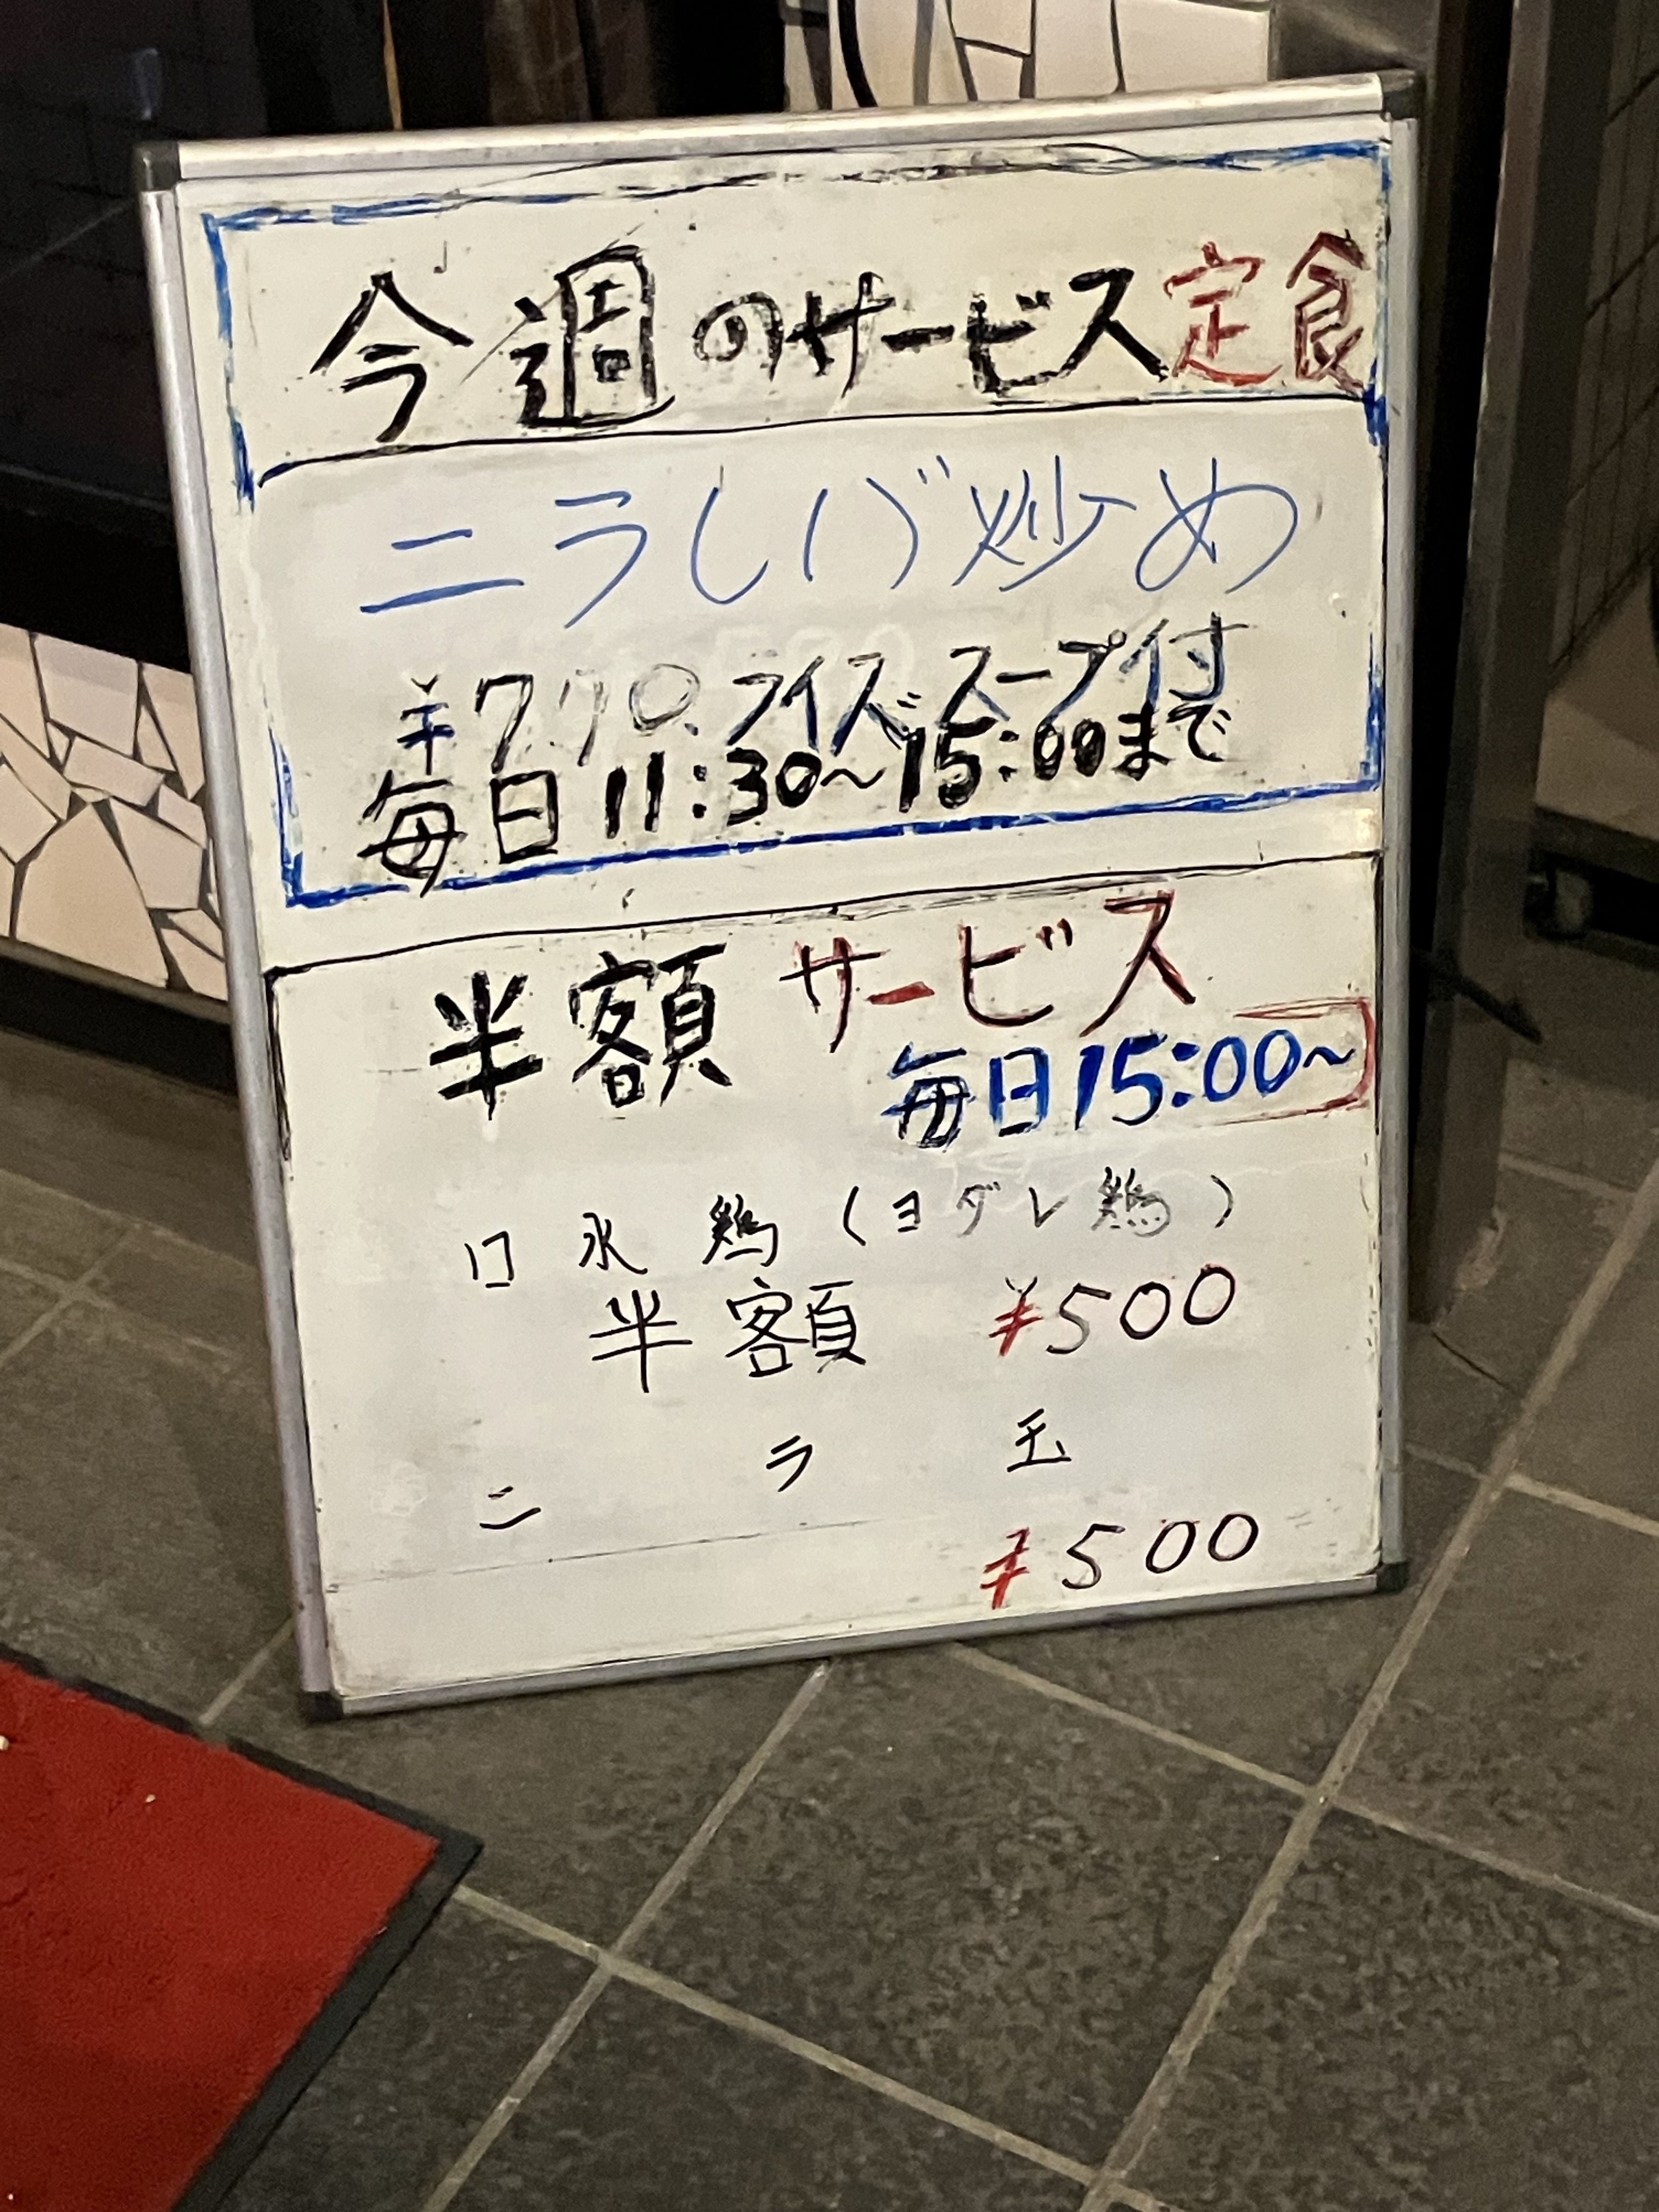 今週のサービス定食
ニラレバ炒め
¥770、ライス、スープ付
毎日11:30~15:00まで
半額サービス
毎日15:00~
口水鶏(ヨダレ鶏)
半額 ¥500
ニラ玉
¥500